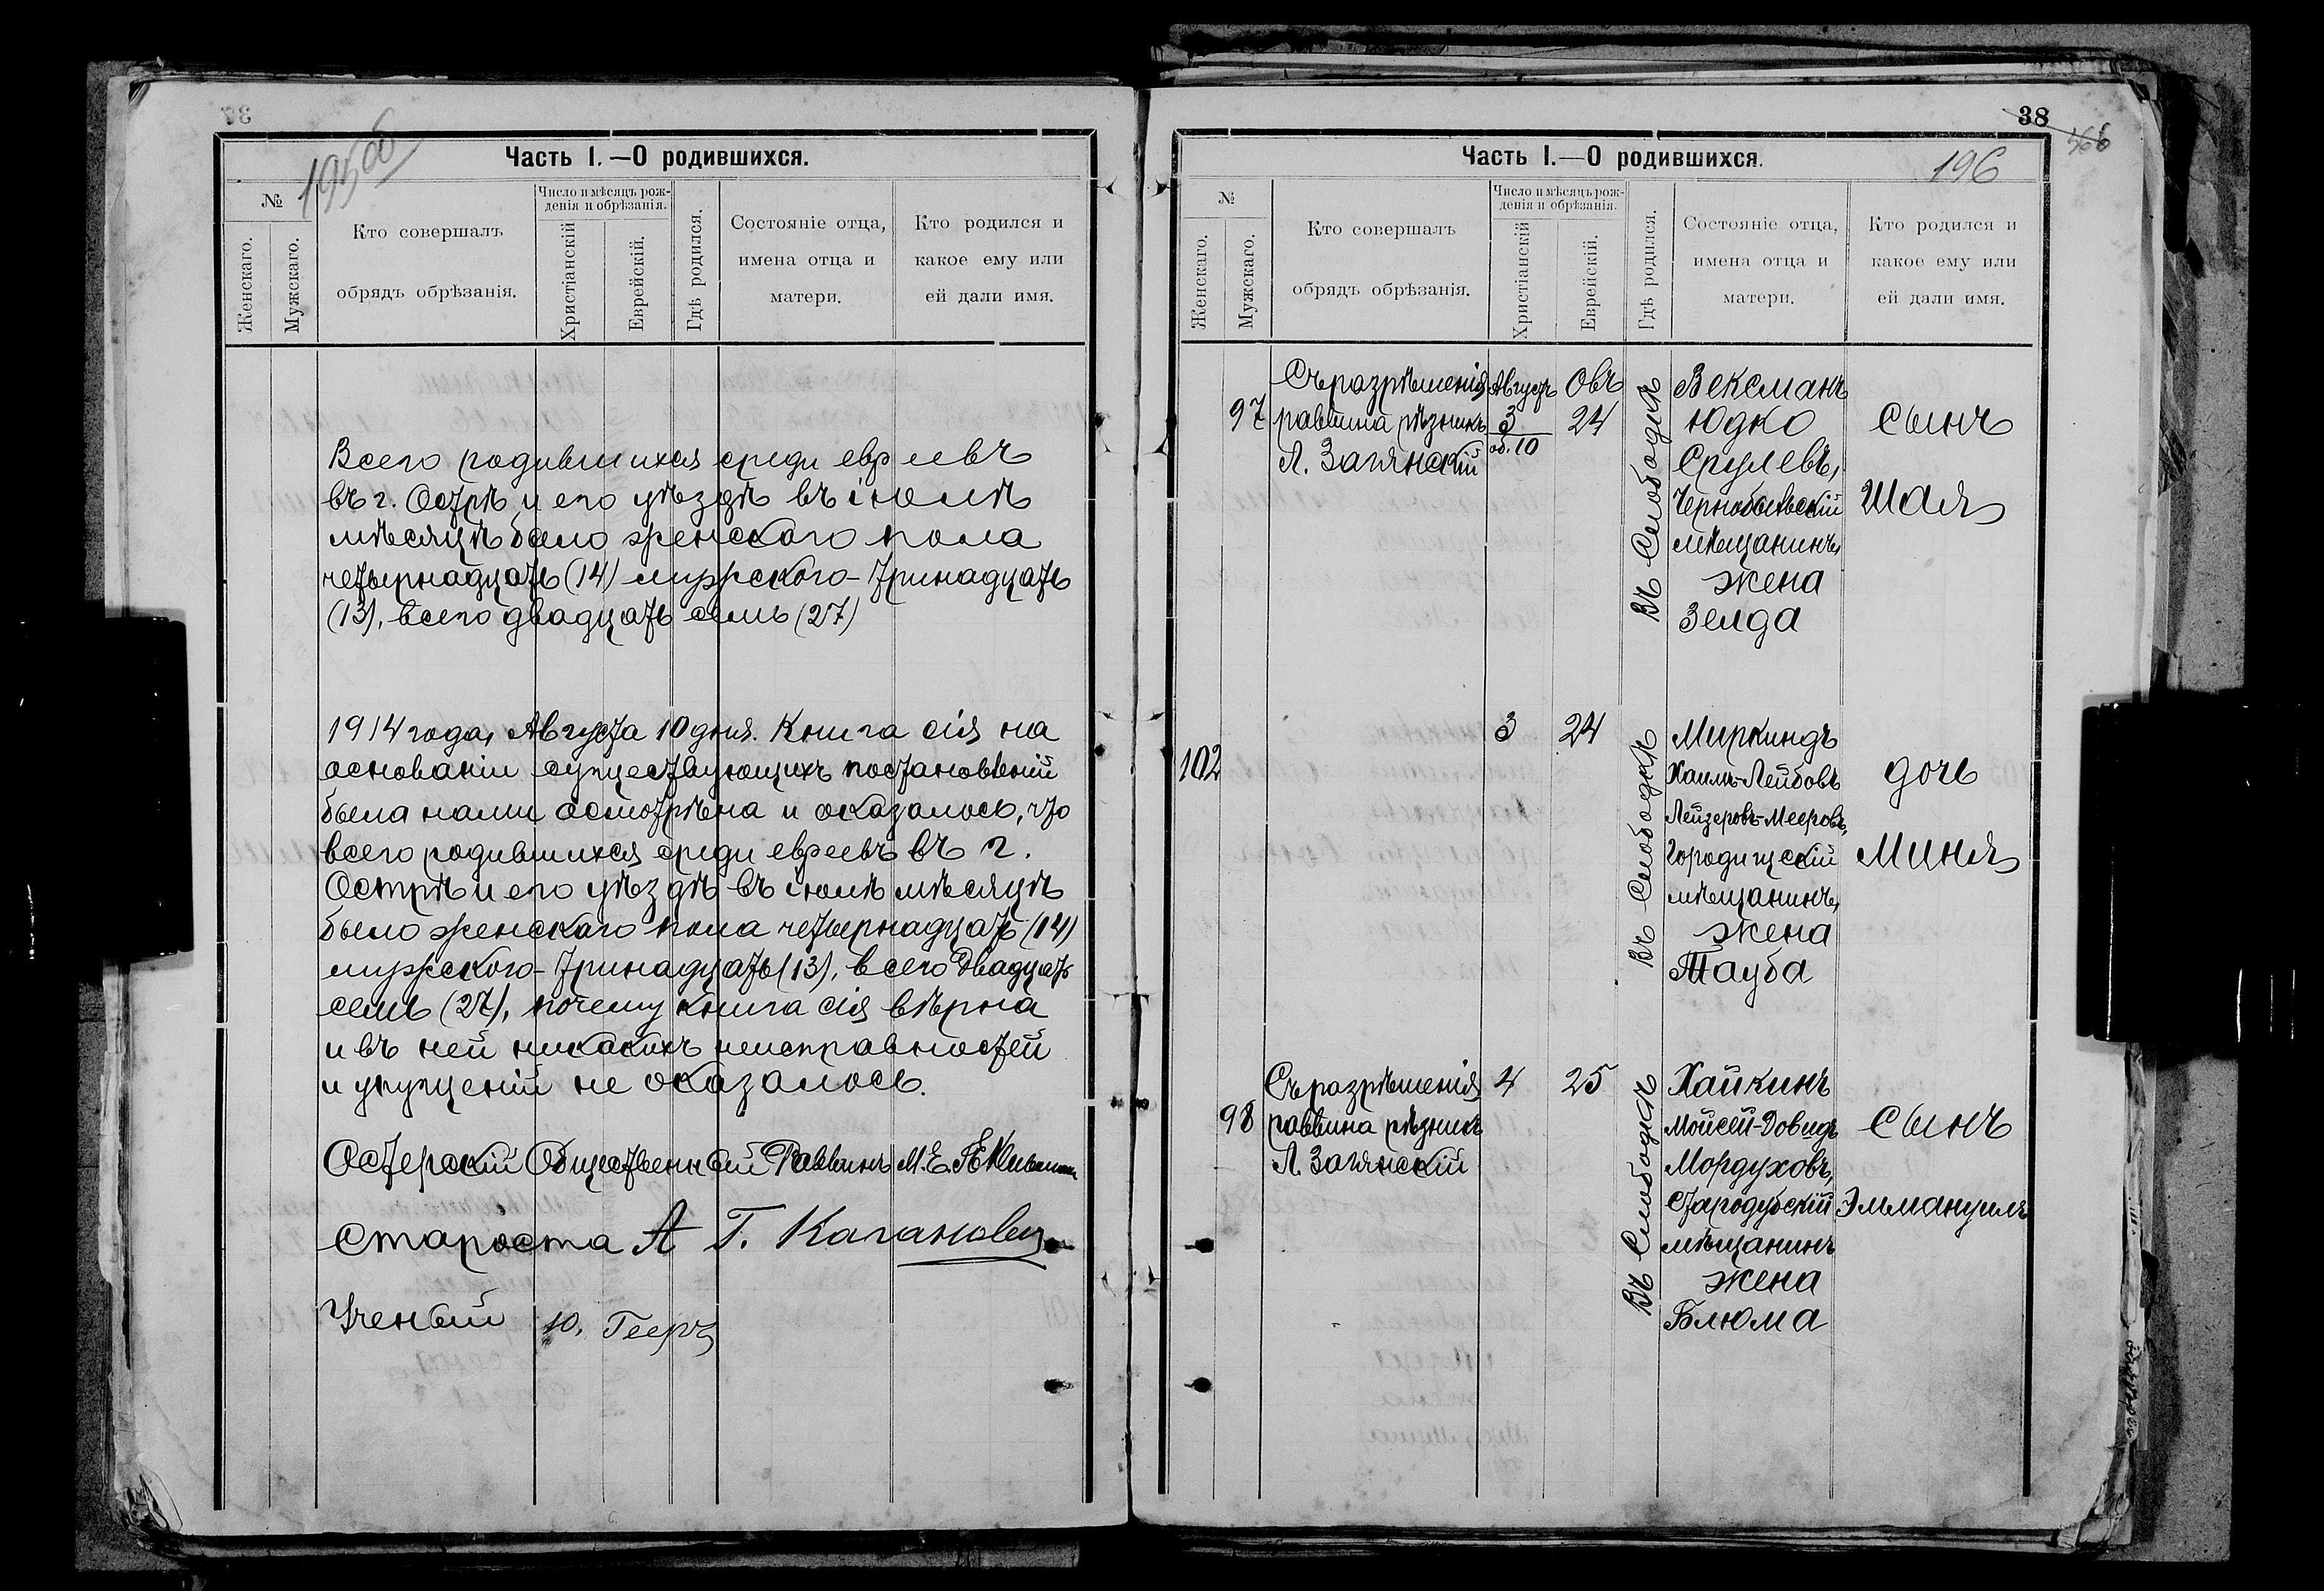 195 об
Часть I.—О родившихся.
№
Женскаго.
Мужскаго.
Кто совершалъ
обрядъ обрѣзанія.
Число и мѣсяцъ рож-
денія и обрѣзанія.
Христіанскій
Еврейскій.
Гдѣ родился.
Состояніе отца,
имена отца и
матери.
Кто родился и
какое ему или
ей дали имя.
Всего родившихся среди евреевъ
въ г. Острѣ и его уѣздѣ въ іюлѣ
мѣсяцѣ было женскаго пола
четырнадцать (14) мужского - тринадцать
(13), всего двадцать семь (27)
1914 года, Августа 10 дня. Книга сія на
основаніи существующихъ постановленій
была нами осмотрѣна и оказалось, что
всего родившихся среди евреевъ въ г.
Острѣ и его уѣздѣ въ іюлѣ мѣсяцѣ
было женскаго пола четырнадцать (14)
мужского - тринадцать (13), всего двадцать
семь (27), почему книга сія вѣрна
и въ ней никакихъ неисправностей
и упущеній не оказалось.
Остерскій Общественный Раввинъ М. Е.
Староста А Г. Кагановичъ
Ученый Ю. Гееръ
38
196
Часть I.—О родившихся.
№
Женскаго.
Мужскаго.
Кто совершалъ
обрядъ обрѣзанія.
Число и мѣсяцъ рож-
денія и обрѣзанія.
Христіанскій
Еврейскій.
Гдѣ родился.
Состояніе отца,
имена отца и
матери.
Кто родился и
какое ему или
ей дали имя.
97
Съ разрѣшенія
раввина рѣзникъ
Л. Загянскій
Августъ
3
об. 10
Овъ
24
Въ Слободкѣ
Вексманъ
Юдко
Срулевъ,
Чернобыльскій
мѣщанинъ,
жена
Зелда
сынъ
Шая
102
3
24
Въ Слободкѣ
Миркиндъ
Хаимъ-Лейбовъ
Лейзеровъ-Мееровъ,
Городищскій
мѣщанинъ,
жена
Тауба
дочь
Миня
98
Съ разрѣшенія
раввина рѣзникъ
Л. Загянскій
4
25
Въ Слободкѣ
Хайкинъ
Мойсей-Довидъ
Мордуховъ,
Стародубскій
мѣщанинъ
жена
Блюма
сынъ
Эммануилъ